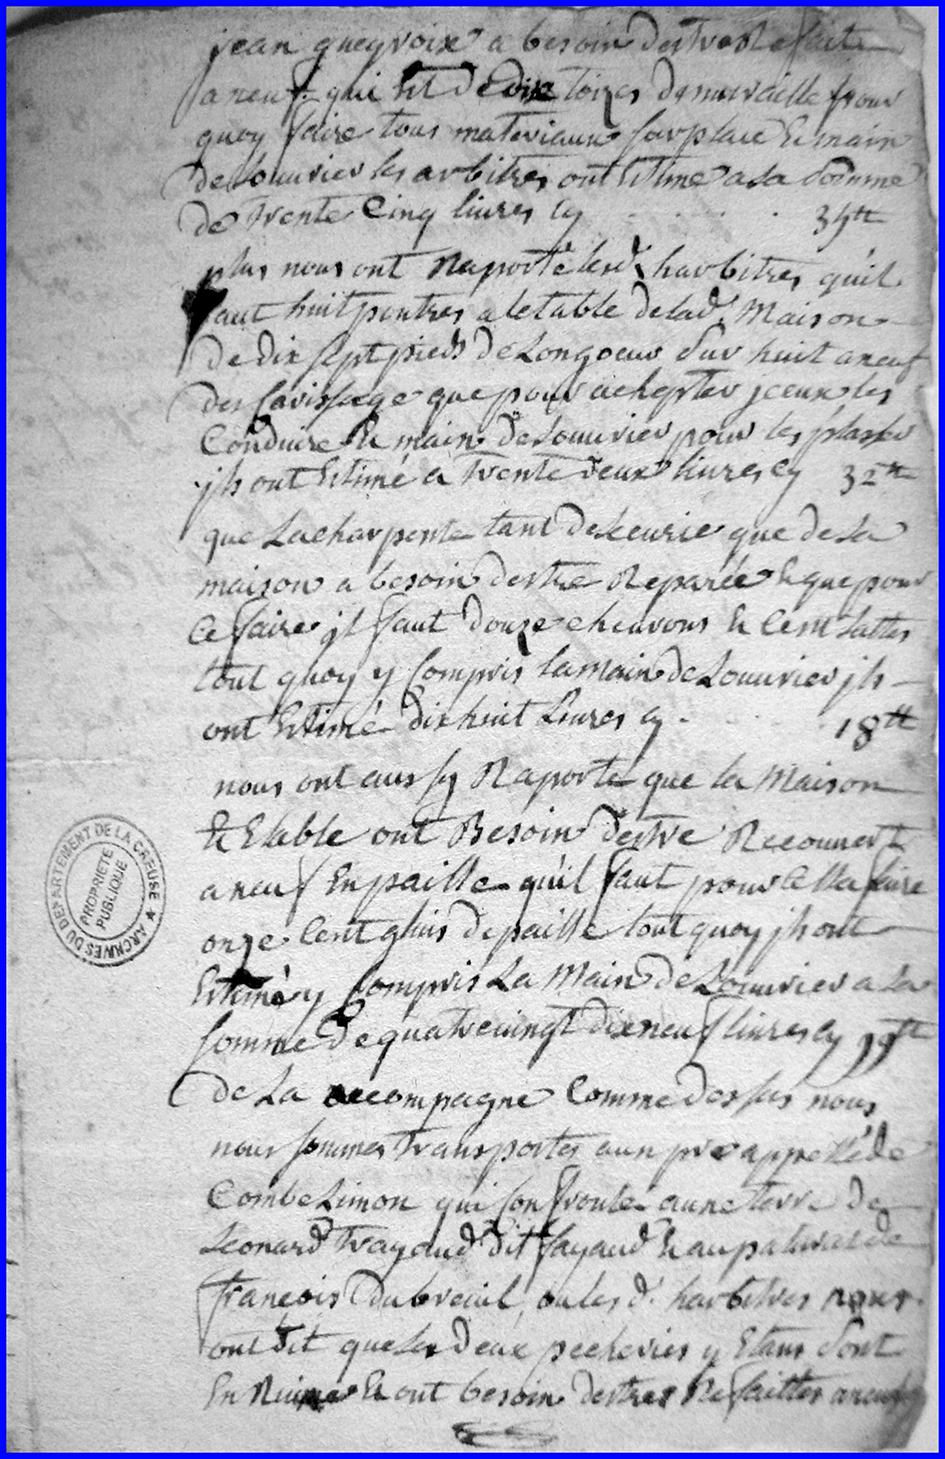 jean queyroix a besoin destre Refaite
a neuf qui est de dix toizes de muraille pour
quoy faire tous materiaux sur place & main
de Louvrier les arbitres ont Estimé a la Somme
de trente Cinq livres cy . . . . . 35tt
plus nous ont Raporté lesd. harbitres qu'il
faut huit poutres a letable de lad. Maison
de dix sept pieds de Longoeur Sur huit a neuf
que pour achepter jceux les
Conduire & main de Louvrier pour les plasser
jls ont Estimé a trente deux livres cy 32tt
que La charpente tant de Leurie que de La
maison a besoin destre Reparée & que pour
Ce faire jl faut douze chevrons & Cent Lattes
tout quoy y Compris la main de Louvrier jls
ont Estimé dix huit Livres cy . 18tt
nous ont aussy Raporté que la Maison
& Etable ont Besoin destre Recouvert
a neuf En paille qu'il faut pour Cella faire
onze Cent gluis de paille tout quoy jls ont
Estimé y Compris La Main de Louvrier a La
Somme de quatre vingt dix neuf livres cy 99tt
de La accompagne Comme dessus nous
nous sommes transportes a un pre appellé de
Combe Limon qui Confronte a une terre de
Leonard trayaud dit fayaud & au patural de
françois dubreuil, ou les d. harbitres nous
ont dit que les deux pecheries y Etans Sont
En Ruine & ont besoin destres Refaittes a neuf
ARCHIVES DU DEPARTEMENT DE LA CREUSE ★
PROPRIETE
PUBLIQUE